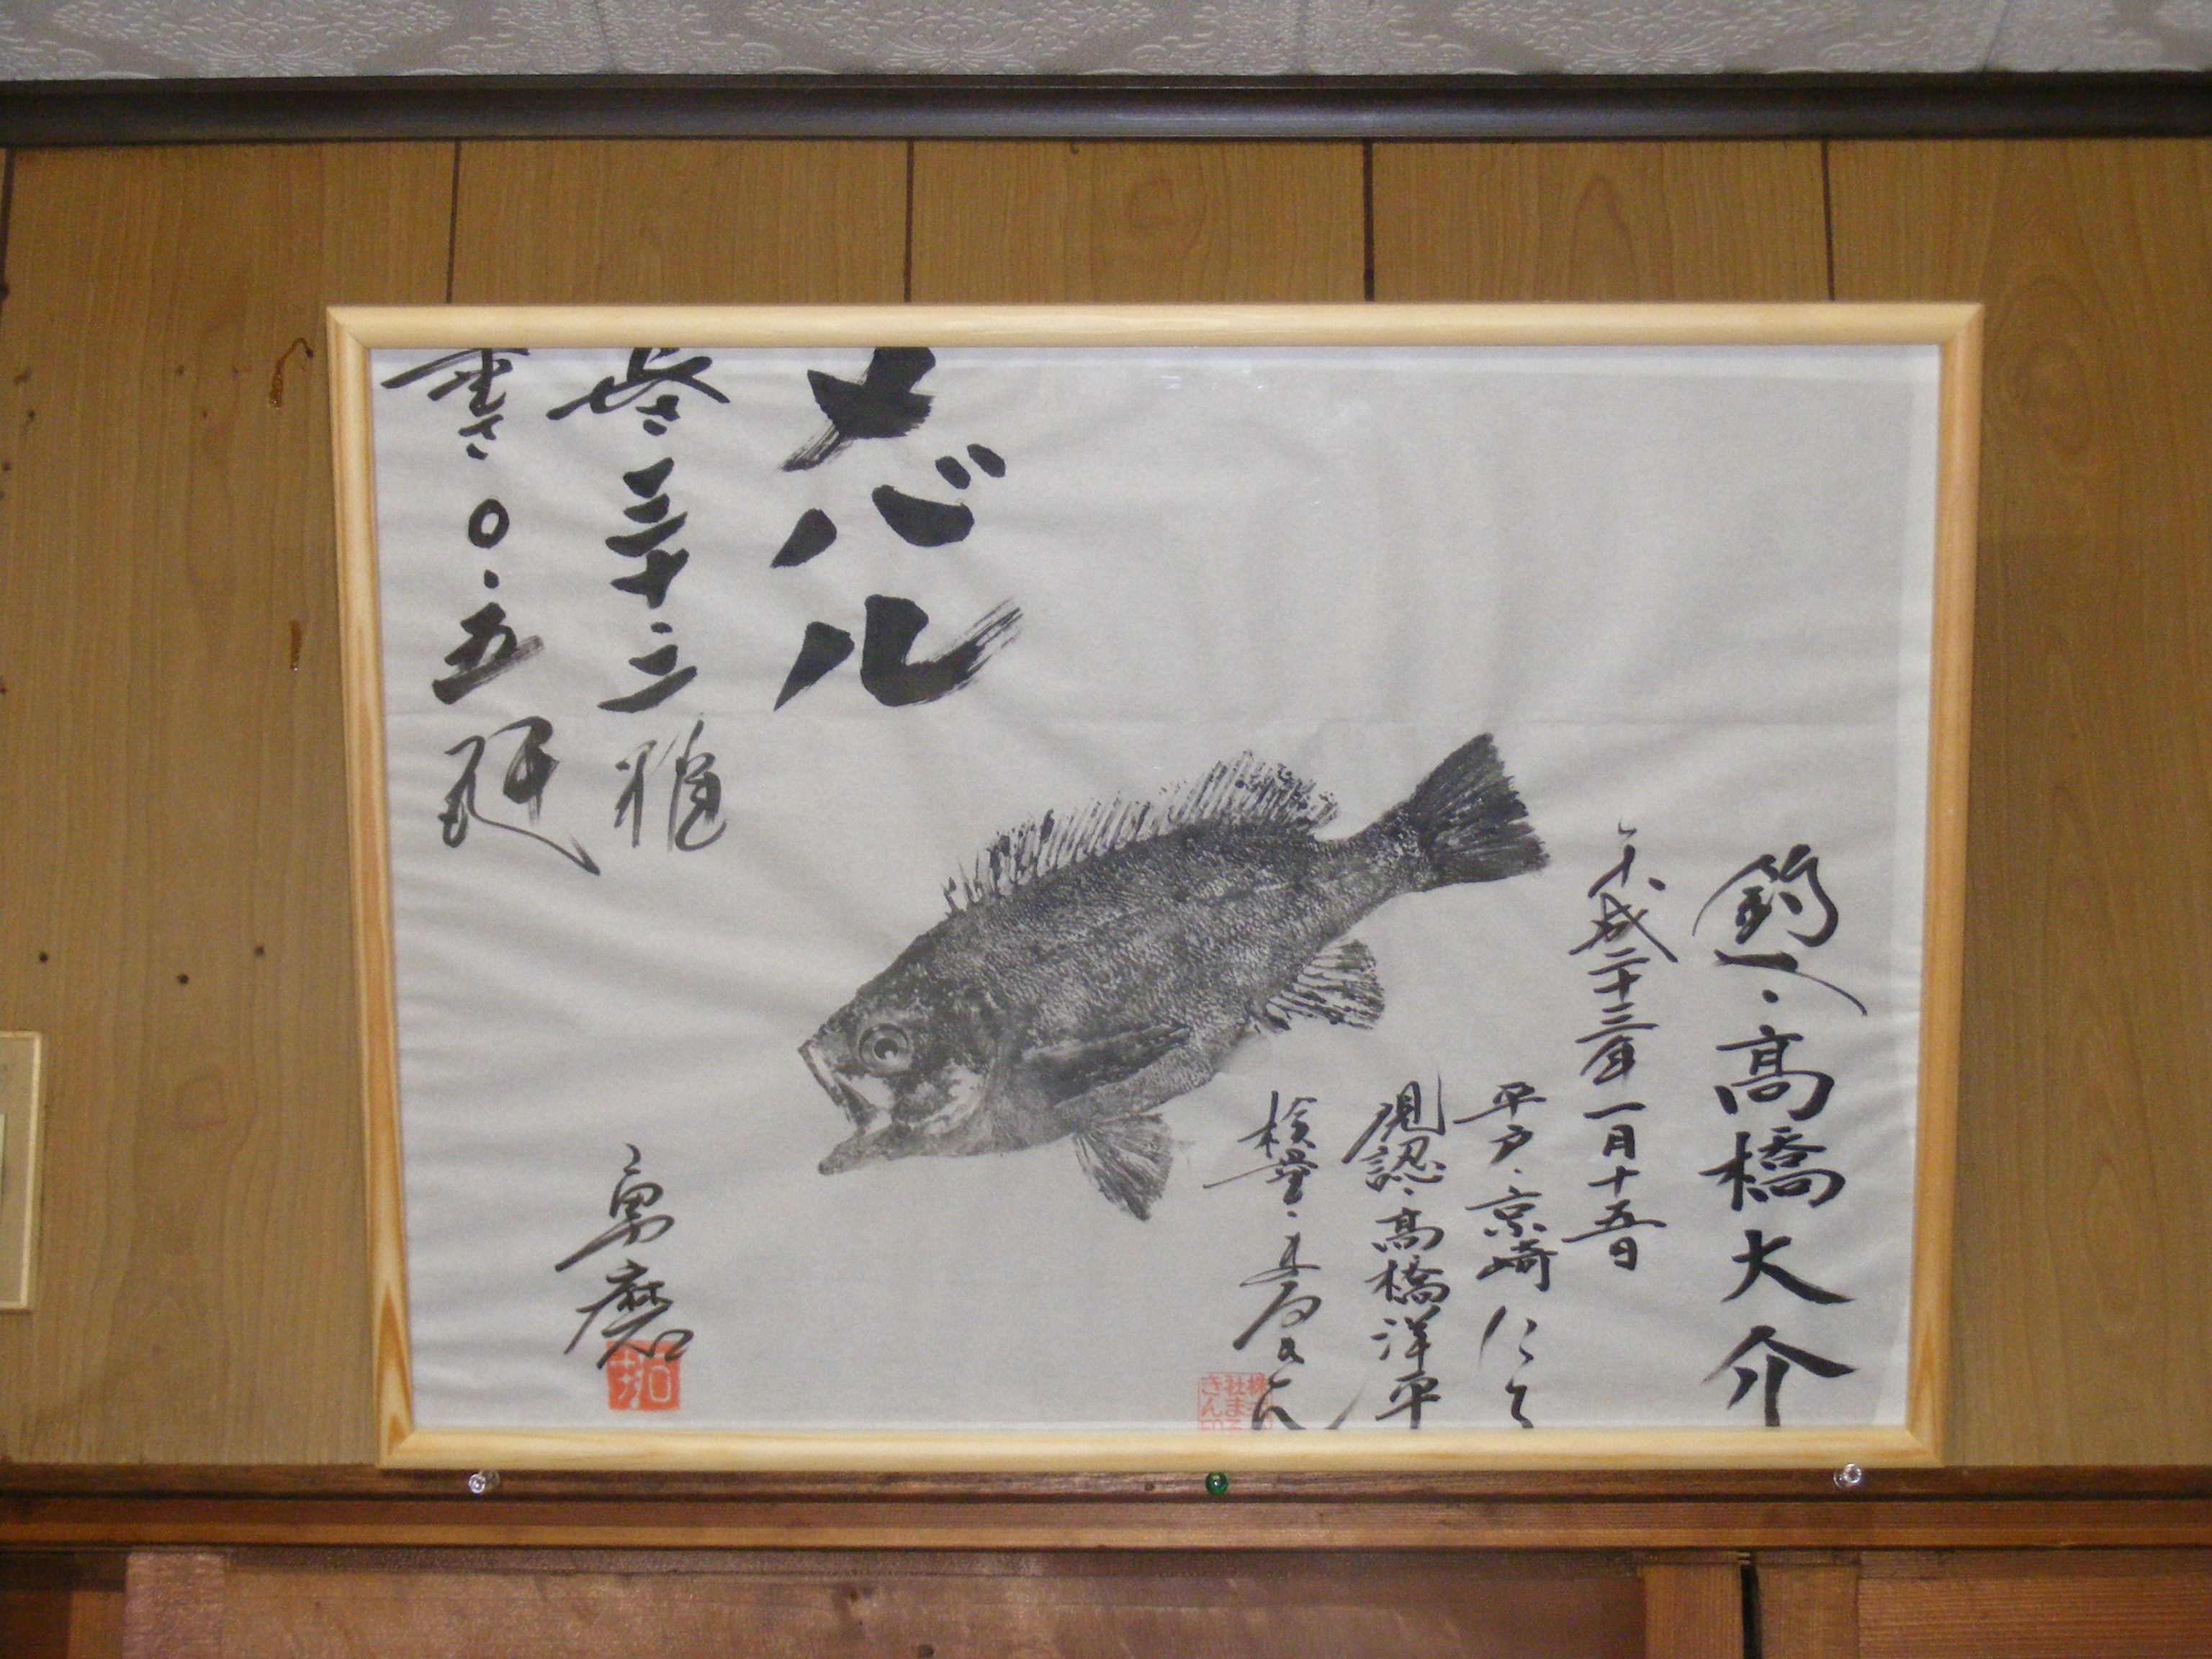 釣人・高橋大介
平成二十三年一月十五日
平戸・京崎にて
現認・高橋洋平
検量・まるきん
メバル
長さ三十・二糎
重さ〇・五瓩
勇磨